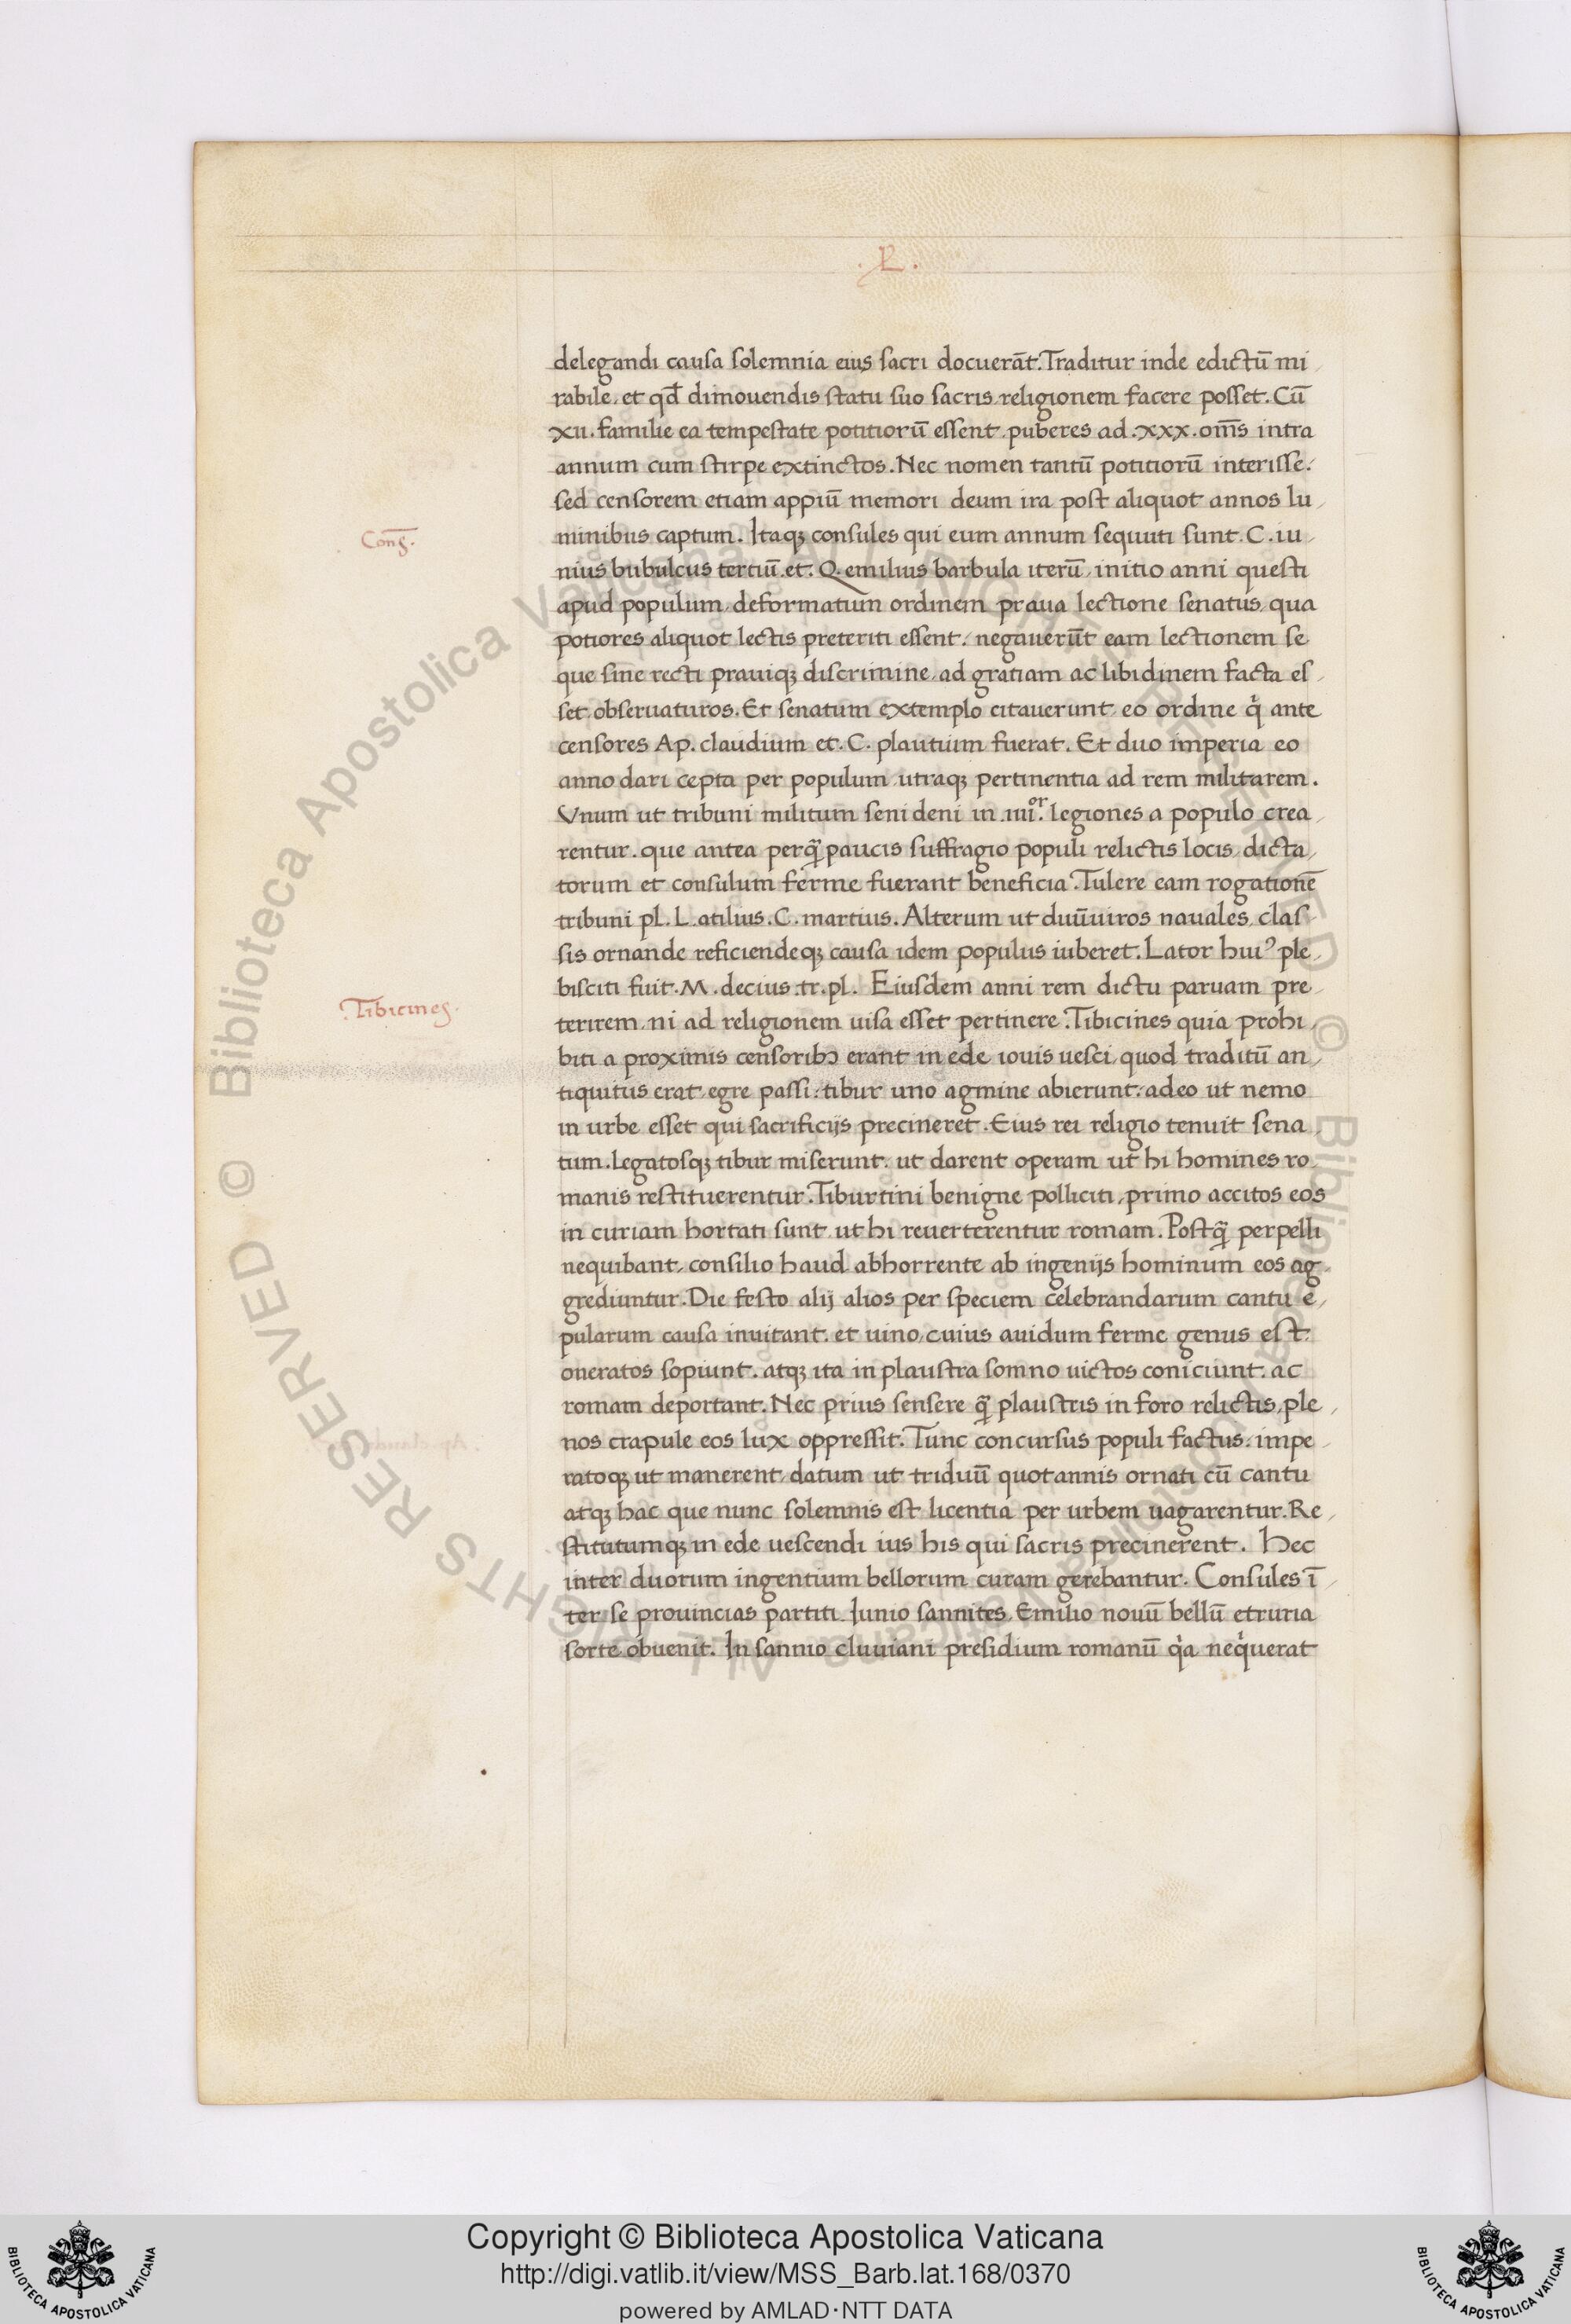 .PL.
delegandi causa solemnia eius sacri docuerāt. Traditur inde edictū mi
rabile. et qđ dimouendis statu suo sacris religionem facere posset. Cū
xii. familie ea tempestate potitiorū essent puberes ad .xxx. om̄s intra
annum cum stirpe extinctos. Nec nomen tantū potitiorū interisse.
sed censorem etiam appiū memori deum ira post aliquot annos lu
Conš.
minibus captum. Itaqȝ consules qui eum annum sequuti sunt. C. iu
nius bubulcus tertiū. et. Q. emilius barbula iterū, initio anni questi
apud populum, deformatum ordinem praua lectione senatus, qua
potiores aliquot lectis preteriti essent. negauerūt eam lectionem se
que sine recti prauiqȝ discrimine, ad gratiam ac libidinem facta es
set obseruaturos. Et senatum extemplo citauerunt eo ordine q̇ ante
censores Ap. claudium et. C. plautium fuerat. Et duo imperia eo
anno dari cepta per populum, utraqȝ pertinentia ad rem militarem.
Vnum ut tribuni militum seni deni in .iiii.or legiones a populo crea
rentur. que antea perq̄ paucis suffragio populi relictis locis, dicta
torum et consulum ferme fuerant beneficia. Tulere eam rogationē
tribuni pl. L. atilius. C. martius. Alterum ut duūuiros nauales clas
sis ornande reficiendeqȝ causa idem populus iuberet. Lator huiꝰ ple
bisciti fuit. M. decius .tr. pl. Eiusdem anni rem dictu paruam pre
.Tibicines.
terirem, ni ad religionem uisa esset pertinere. Tibicines quia prohi
biti a proximis censoribꝫ erant in ede iouis uesci, quod traditū an
tiquitus erat, egre passi: tibur uno agmine abierunt. adeo ut nemo
in urbe esset qui sacrificijs precineret. Eius rei religio tenuit sena
tum. legatosqȝ tibur miserunt. ut darent operam ut hi homines ro
manis restituerentur. Tiburtini benigne polliciti, primo accitos eos
in curiam hortati sunt ut hi reuerterentur romam. Postq̄ perpelli
nequibant, consilio haud abhorrente ab ingenijs hominum eos ag
grediuntur. Die festo alij alios per speciem celebrandarum cantu e
pularum causa inuitant. et uino, cuius auidum ferme genus est
oneratos sopiunt. atqȝ ita in plaustra somno uictos coniciunt. ac
romam deportant. Nec prius sensere q̄ plaustris in foro relictis, ple
nos crapule eos lux oppressit. Tunc concursus populi factus. impe
ratoqȝ ut manerent, datum ut triduū quotannis ornati cū cantu
atqȝ hac que nunc solemnis est licentia per urbem uagarentur. Re
stitutumqȝ in ede uescendi ius his qui sacris precinerent. Hec
inter duorum ingentium bellorum curam gerebantur. Consules ī
ter se prouincias partiti. Iunio sannites, Emilio nouū bellū etruria
sorte obuenit. In sannio cluuiani presidium romanū q̇a neq̇uerat
Copyright © Biblioteca Apostolica Vaticana
http://digi.vatlib.it/view/MSS_Barb.lat.168/0370
powered by AMLAD·NTT DATA
BIBLIOTECA APOSTOLICA VATICANA
BIBLIOTECA APOSTOLICA VATICANA
© Biblioteca Apostolica Vaticana ALL RIGHTS RESERVED © Biblioteca Apostolica Vaticana ALL RIGHTS RESERVED